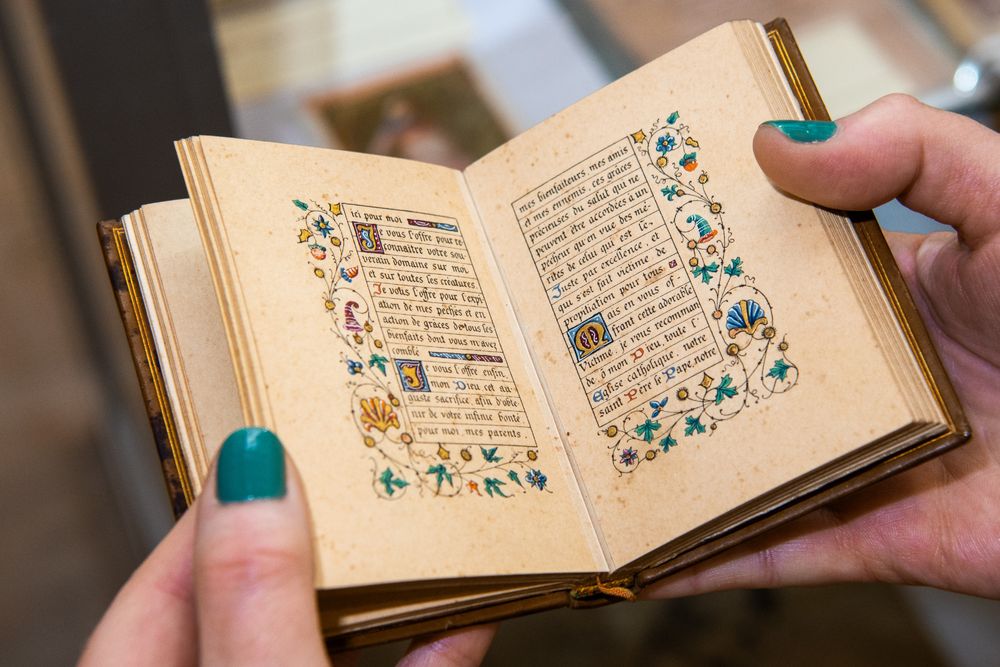 ici pour moi
Je vous l'offre pour re
connaître votre sou
verain domaine sur moi
et sur toutes les créatures.
Je vous l'offre pour l'expi
ation de mes péchés et en
action de grâces de tous les
bienfaits dont vous m'avez
comblé
Je vous l'offre enfin,
mon Dieu, cet au
guste sacrifice, afin d'obte
nir de votre infinie bonté
pour moi, mes parents,
mes bienfaiteurs, mes amis
et mes ennemis, ces grâces
précieuses du salut qui ne
peuvent être accordées à un
pécheur qu'en vue des mé-
rites de celui qui est le
Juste par excellence, et
qui s'est fait victime de
propitiation pour tous.
Mais en vous of
frant cette adorable
Victime, je vous recomman
de, ô mon Dieu, toute l'
Eglise catholique, notre
saint Père le Pape, notre